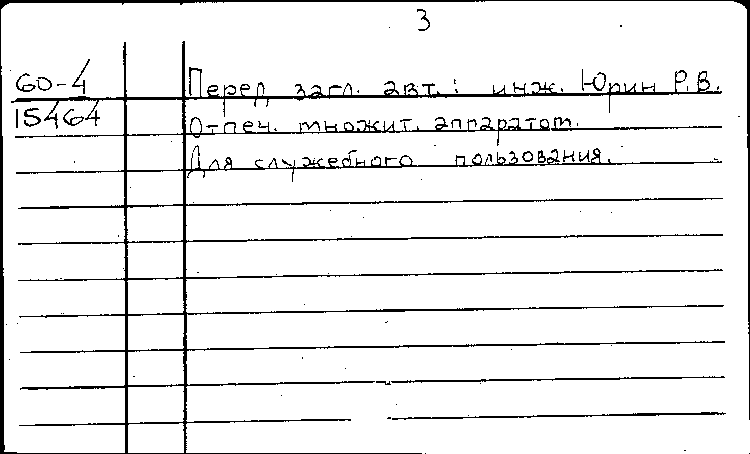 3
60-4
15464
Перед загл. авт.: инж. Юрин Р.В.
Отпеч. множит. аппаратом.
Для служебного пользования.